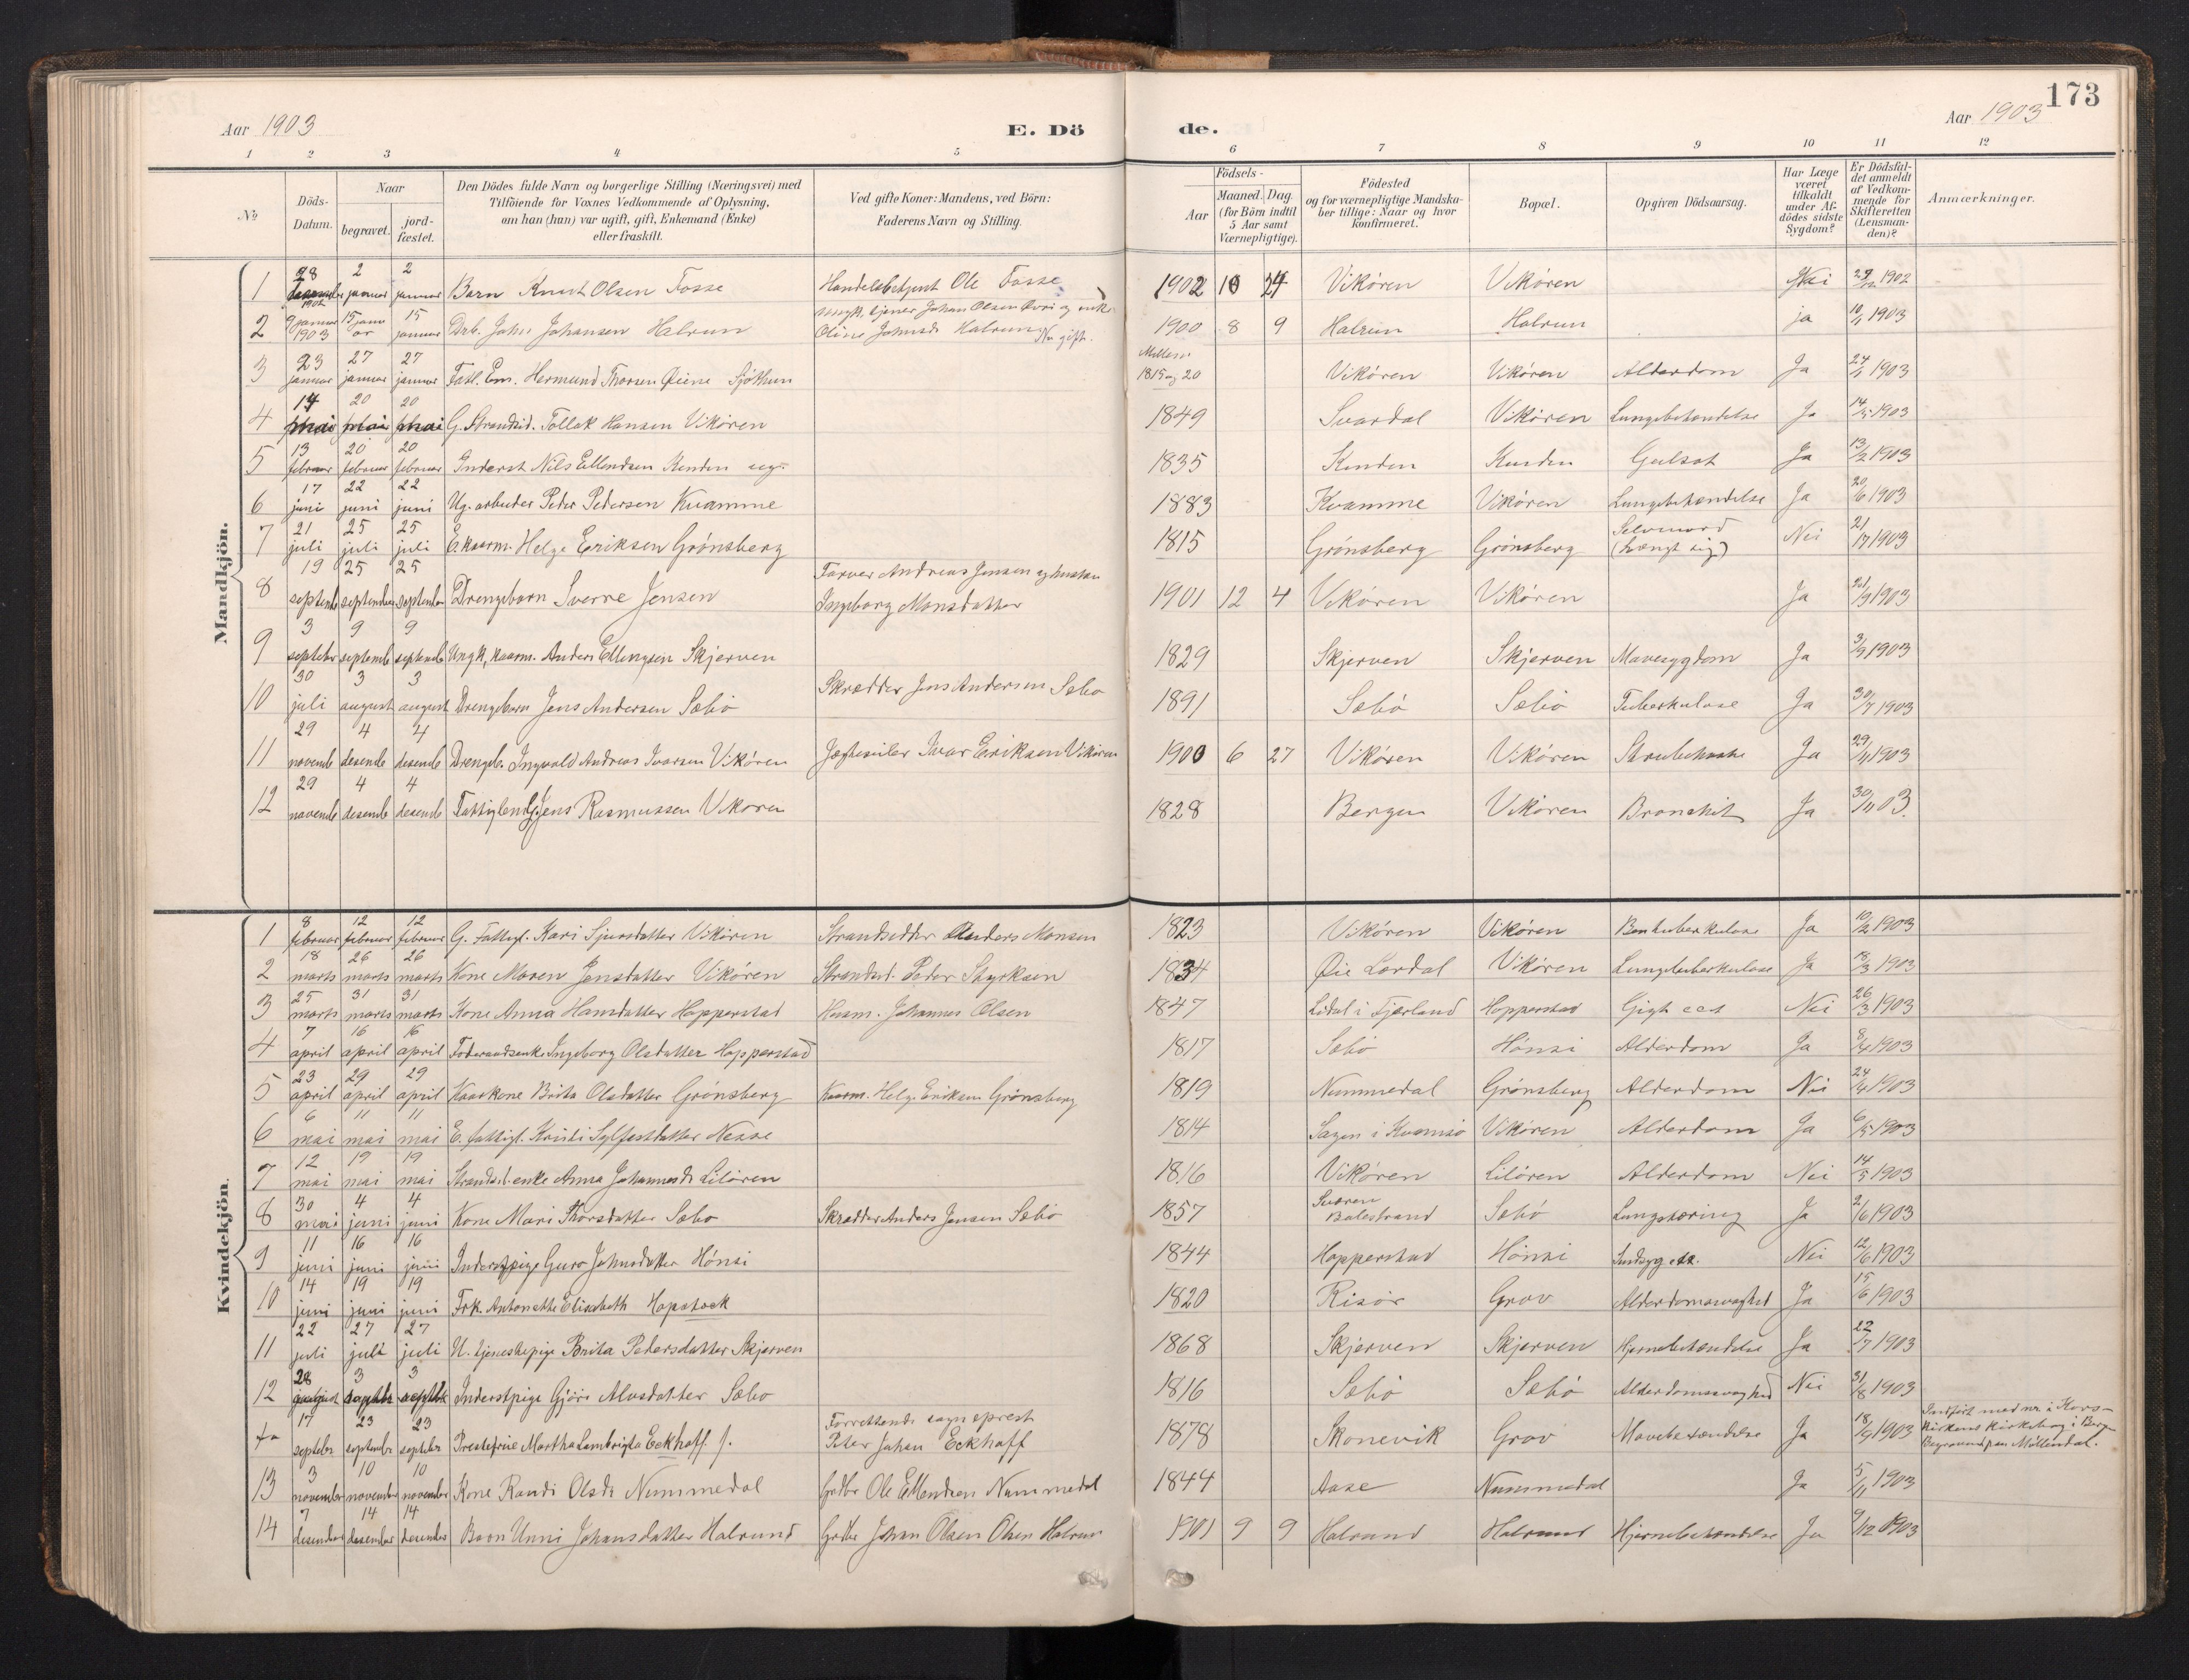 173
Aar 1903
E. Dö
de.
Aar 1903
1 2 3 4 5 6 7 8 9 10 11 12
No
Döds-
Datum.
Naar
begravet.
jord-
fæstet.
Den Dödes fulde Navn og borgerlige Stilling (Næringsvei) med
Tilföiende for Voxnes Vedkommende af Oplysning,
om han (hun) var ugift, gift, Enkemand (Enke)
eller fraskilt.
Ved gifte Koner: Mandens, ved Börn:
Faderens Navn og Stilling.
Födsels-
Aar
Maaned. Dag.
(for Börn indtil
5 Aar samt
Værnepligtige).
Födested
og for værnepligtige Mandska-
ber tillige: Naar og hvor
konfirmeret.
Bopæl.
Opgiven Dödsaarsag.
Har Læge
været
tilkaldt
under Af-
dödes sidste
Sygdom?
Er Dödsfal-
det anmeldt
af Vedkom-
mende for
Skifteretten
(Lensman-
den)?
Anmærkninger.
Mandkjön.
1 28 desember 1902 2 januar 2 januar Barn Knut Olsen Fosse Handelsbetjent Ole Fosse 1902 10 24 Vikören Vikören Nei 29/12 1902
2 9 januar 1903 15 januar 15 januar Drb. Johan Johansen Halrun Johan Olsen Oline Johnsd. Halrun Nu gift. 1900 8 9 Halrun Halrun ja 10/1 1903
3 23 januar 27 januar 27 januar Fatl. Em. Hermund Thorsen Øiene Sjøthun Mellem 1815 og 20 Vikören Vikören Alderdom Ja 24/1 1903
4 14 mai 20 mai 20 mai G. Strandsid. Tollak Hansen Vikören 1849 Svardal Vikören Lungebetændelse Ja 14/5 1903
5 13 februar 20 februar 20 februar Inderst Nils Ellendsen Kunden ug. 1835 Kunden Kunden Gulsot Ja 13/2 1903
6 17 juni 22 juni 22 juni Ug. arbeider Peder Pedersen Kvamme 1883 Kvamme Vikören Lungebetændelse Ja 20/6 1903
7 21 juli 25 juli 25 juli E. kaarm. Helge Eriksen Grönsberg 1815 Grönsberg Grönsberg Selvmord (hængt sig) Nei 21/7 1903
8 19 september 25 september 25 september Drengebarn Sverre Jensen Farver Andreas Jensen og hustru Ingeborg Monsdatter 1901 12 4 Vikören Vikören Ja 21/9 1903
9 3 septebr 9 septemb 9 septemb Ungk. kaarm. Anders Ellingsen Skjerven 1829 Skjerven Skjerven Mavesygdom Ja 3/9 1903
10 30 juli 3 august 3 august Drengebarn Jens Andersen Sæbö Skrædder Jens Andersen Sæbø 1891 Sæbö Sæbö Tuberkulose Ja 30/7 1903
11 29 novemb 4 desemb 4 desemb Drengeb. Ingvald Andreas Ivarsen Vikören Ivar Eriksen Vikören 1900 6 27 Vikören Vikören Strubehoste Ja 29/11 1903
12 29 novemb 4 desemb 4 desemb Fattiglem Jens Rasmussen Vikøren 1828 Bergen Vikören Bronchit Ja 30/11 03.
Kvindekjön.
1 8 februar 12 februar 12 februar G. Fattigl. Kari Sjursdatter Vikören Strandsidder Anders Monsen 1823 Vikören Vikören Bentuberkulose Ja 10/2 1903
2 18 marts 26 marts 26 marts Kone Maren Jensdatter Vikören Strandsd. Peder Styrksen 1834 Øie Lærdal Vikören Lungetuberkulose Ja 18/3 1903
3 25 marts 31 marts 31 marts Kone Anna Hansdatter Hopperstad Husm. Johannes Olsen 1847 Lidal i Fjærland Hopperstad Gigt ect Nei 26/3 1903
4 7 april 16 april 16 april Foderaadsenke Ingeborg Olsdatter Hopperstad 1817 Sæbö Hönsi Alderdom Ja 8/4 1903
5 23 april 29 april 29 april Kaarkone Brita Olsdatter Grönsberg Kaarm. Helge Eriksen Grönsberg 1819 Nummedal Grönsberg Alderdom Nei 24/4 1903
6 6 mai 11 mai 11 mai E. fattigl. Kristi Sylfestdatter Nesse 1814 Sagen i Kvamsø Vikören Alderdom Ja 6/5 1903
7 12 mai 19 mai 19 mai Strandsd. enke Anna Johannesd. Lilören 1816 Vikören Lilören Alderdom Nei 14/5 1903
8 30 mai 4 juni 4 juni Kone Mari Thorsdatter Sæbø Skrædder Anders Jensen Sæbö 1857 Sværen Balestrand Sæbö Lungetæring Ja 2/6 1903
9 11 juni 16 juni 16 juni Inderstpige Guro Johnsdatter Hönsi 1844 Hopperstad Hönsi Sindsyg etc. Nei 12/6 1903
10 14 juni 19 juni 19 juni Frk. Antonette Elisabeth Hopstock 1820 Risör Grov Alderdomssvaghed Ja 15/6 1903
11 22 juli 27 juli 27 juli U. tjenestepige Brita Pedersdatter Skjerven 1868 Skjerven Skjerven Hjernebetændelse Ja 22/7 1903
12 28 august 3 septbr 3 septbr Inderstpige Gjöri Alvsdatter Sæbø 1816 Sæbö Sæbö Alderdomssvaghed Nei 31/8 1903
17 septebr 23 septembr 23 septebr Prestefrue Martha Lambrigta Eckhoff f. Forrettende sogneprest Peter Johan Eckhoff 1878 Skonevik Grov Mavebetændelse Ja 18/9 1903 Indfört med nr. i Kors-
kirkens kirkebog i Berg
Begravet paa Möllendal.
13 3 november 10 november 10 november Kone Randi Olsdr Nummedal Gadbr Ole Ellendsen Nummedal 1844 Aase Nummedal Ja 5/11 1903
14 7 desember 14 desember 14 desember Barn Unni Johansdatter Halrund Gadbr Johan Olsen Olsen Halrun 1901 9 9 Halrund Halrund Hjernebetændelse Ja 9/12 1903